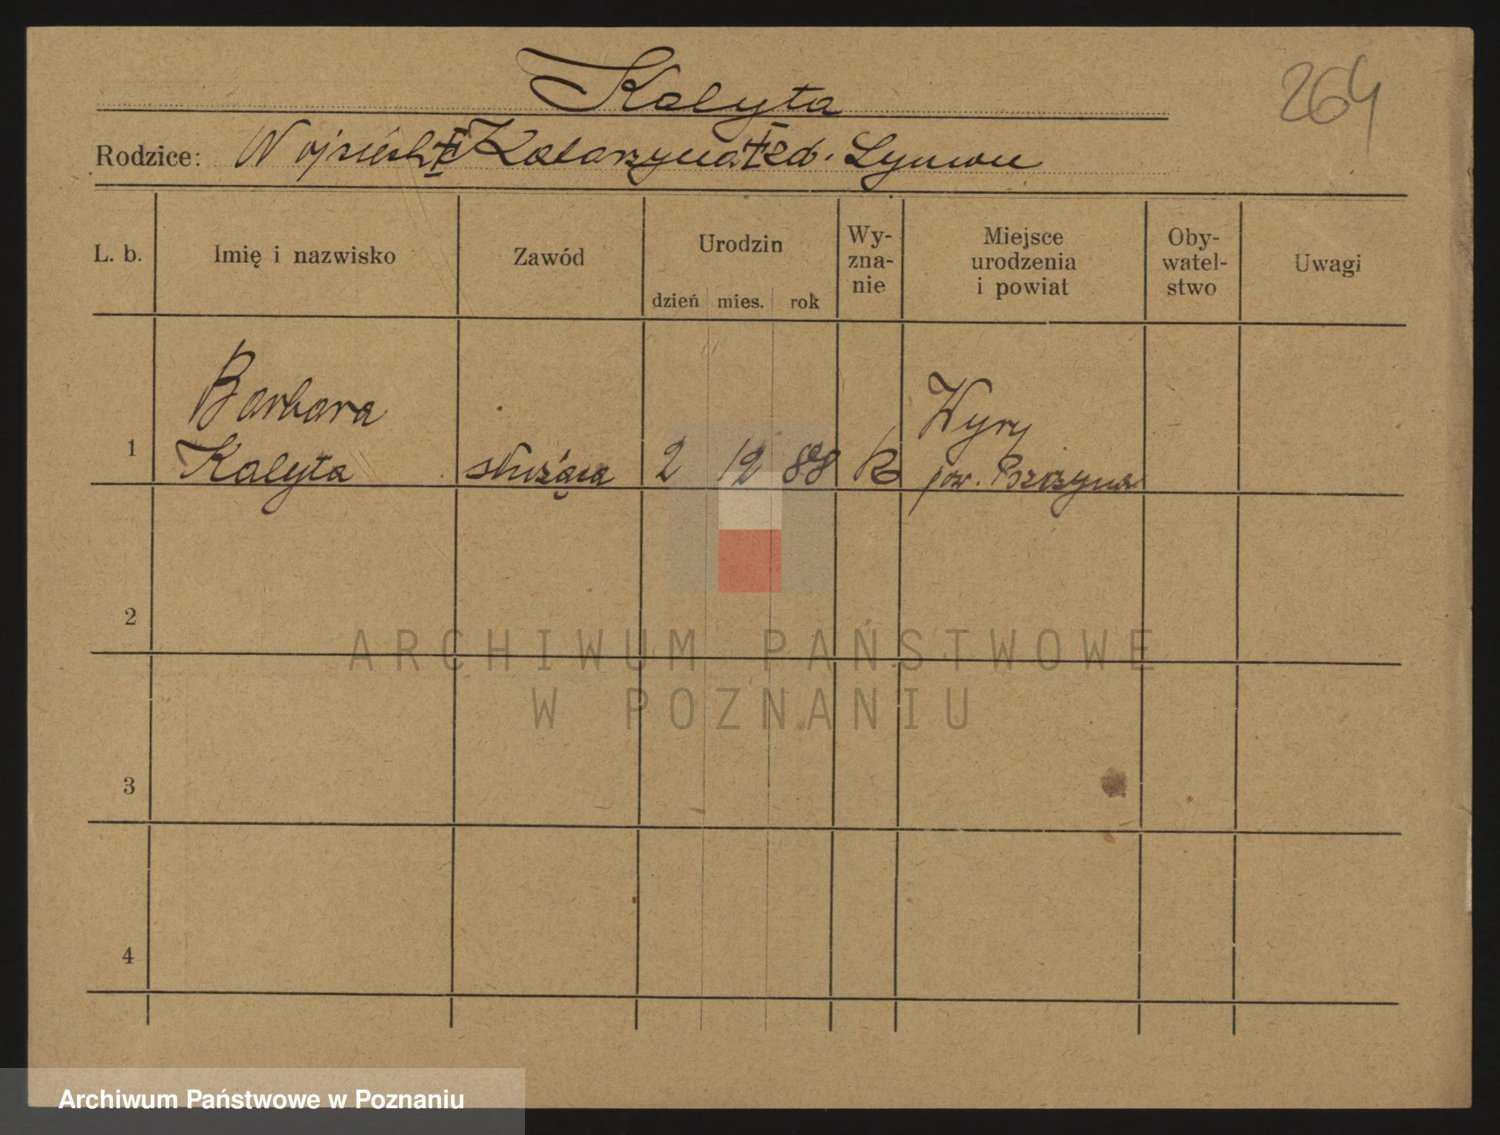 Kalyta
264
Rodzice: Wojciech † Katarzyna † zd.
L. b. Imię i nazwisko Zawód Urodzin dzień mies. rok Wy-zna-nie Miejsce urodzenia i powiat Oby-watel-stwo Uwagi
Barbara Wyry
1 Kalyta służąca 2 12 88 K pow. Pszczyna
2
ARCHIWUM PAŃSTWOWE
W POZNANIU
3
4
Archiwum Państwowe w Poznaniu